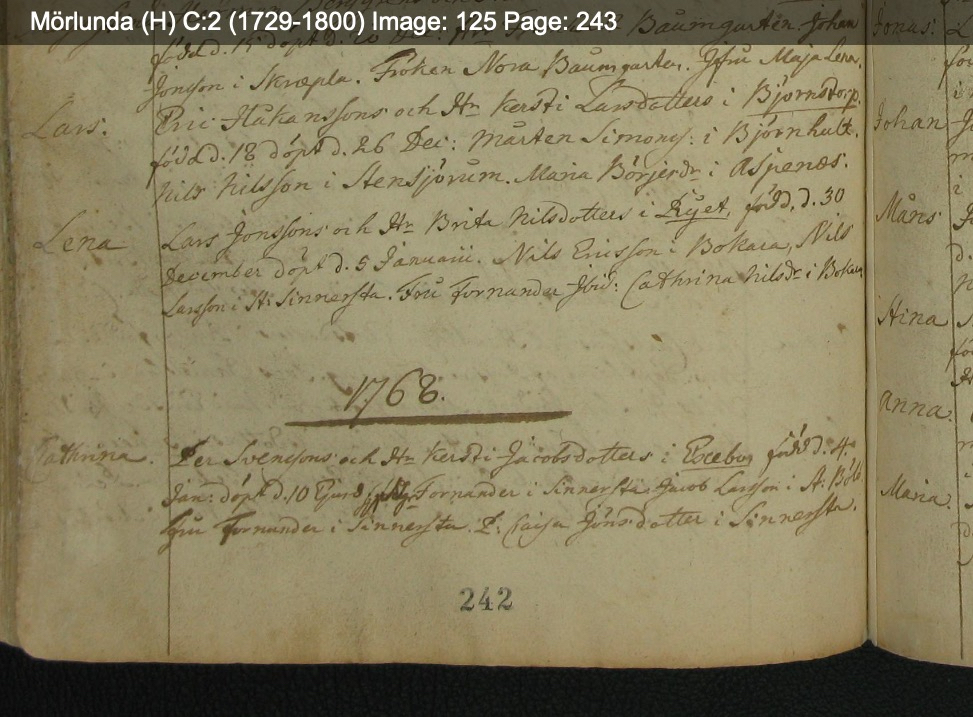 Mörlunda (H) C:2 (1729-1800) Image: 125 Page: 243
född d. 15 döpt d. 20 Baumgarten. Johan
Jonsson i Skräpla. Fröken Nora Baumgarten. Jfru Maja Lena.
Lars. Eric Håkanssons och Hu Kersti Larsdotters i Björnstorp.
född d. 18 döpt d. 26 Dec: Mårten Simons: i Björnhult.
Nils Nilsson i Stensjörum. Maria Börjesdr i Aspenäs.
Lena Lars Jonssons och Hu Brita Nilsdotters i Ryet, född, d. 30
December döpt d. 5 Januarii. Nils Ericsson i Bokara, Nils
Larsson i St: Sinnersta. Fru Fornander ibid: Cathrina Nilsdr i Bokara
1768.
Cathrina. Per Svensons och Hu Kersti Jacobsdotters i född d. 4.
Jan: döpt d. 10 Fornander i Sinnersta Jacob Larsson i
Fru Fornander i Sinnersta. P. Caisa Jönsdotter i Sinnersta.
242
Jonas:
Johan
Måns
Stina
Anna
Maria